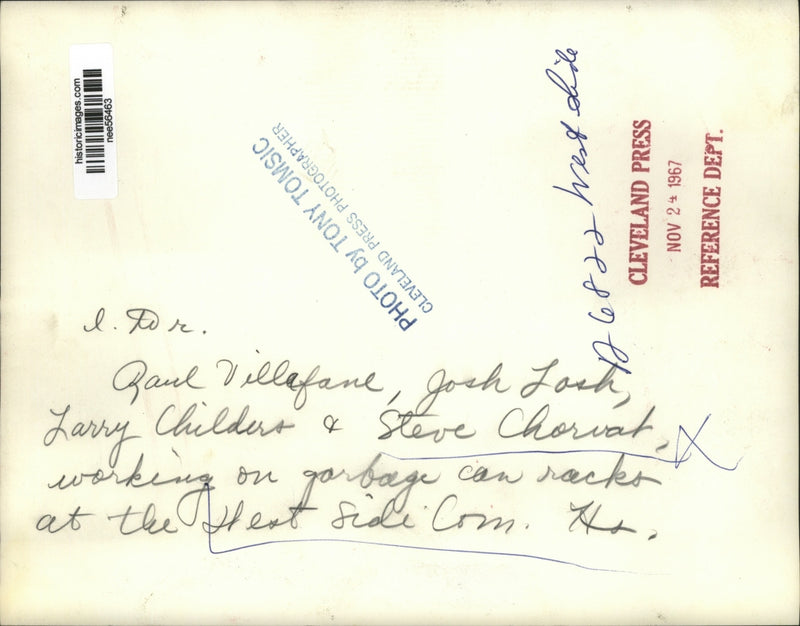 historicimages.com
nee56463
PHOTO by TONY TOMSIC
CLEVELAND PRESS PHOTOGRAPHER
West Side
CLEVELAND PRESS
NOV 24 1967
REFERENCE DEPT.
l. to r.
Raul Villafane, Josh Losh,
Larry Childers & Steve Chorvat,
working on garbage can racks
at the West Side Com. Hs.